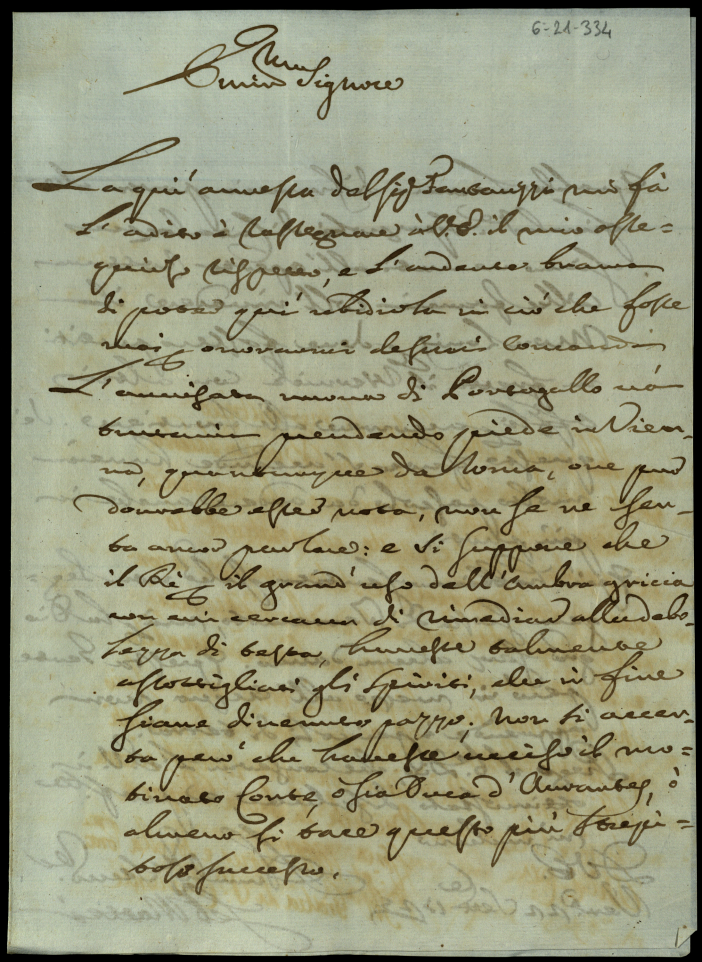 6-21-334
mio Signore
La qui annessa del Sig.r mi fà
l'adito à rassegnare à V.S. il mio osse=
quioso rispetto, e l'ardente brama
di poter qui ubidirla in ciò che fosse
mai onorarmi de suoi comandi
L'avvisata nuova di Portogallo và
tuttavia prendendo piede in Vien-
na, quantunque da Roma, ove pur
dovrebbe esser nota, non se ne sen-
ta ancor parlare: e si suppone che
il Rè il grand'uso dell'Ambra griccia
con cui cercava di rimediar alla debo-
lezza di testa, havesse talmente
assottigliati gli spiriti, che in fine
siane divenuto pazzo; non si accer-
ta però che havesse ucciso il no-
minato Conte, ò sia Duca d' ò
almeno si tace questo più strepi-
toso successo.
1